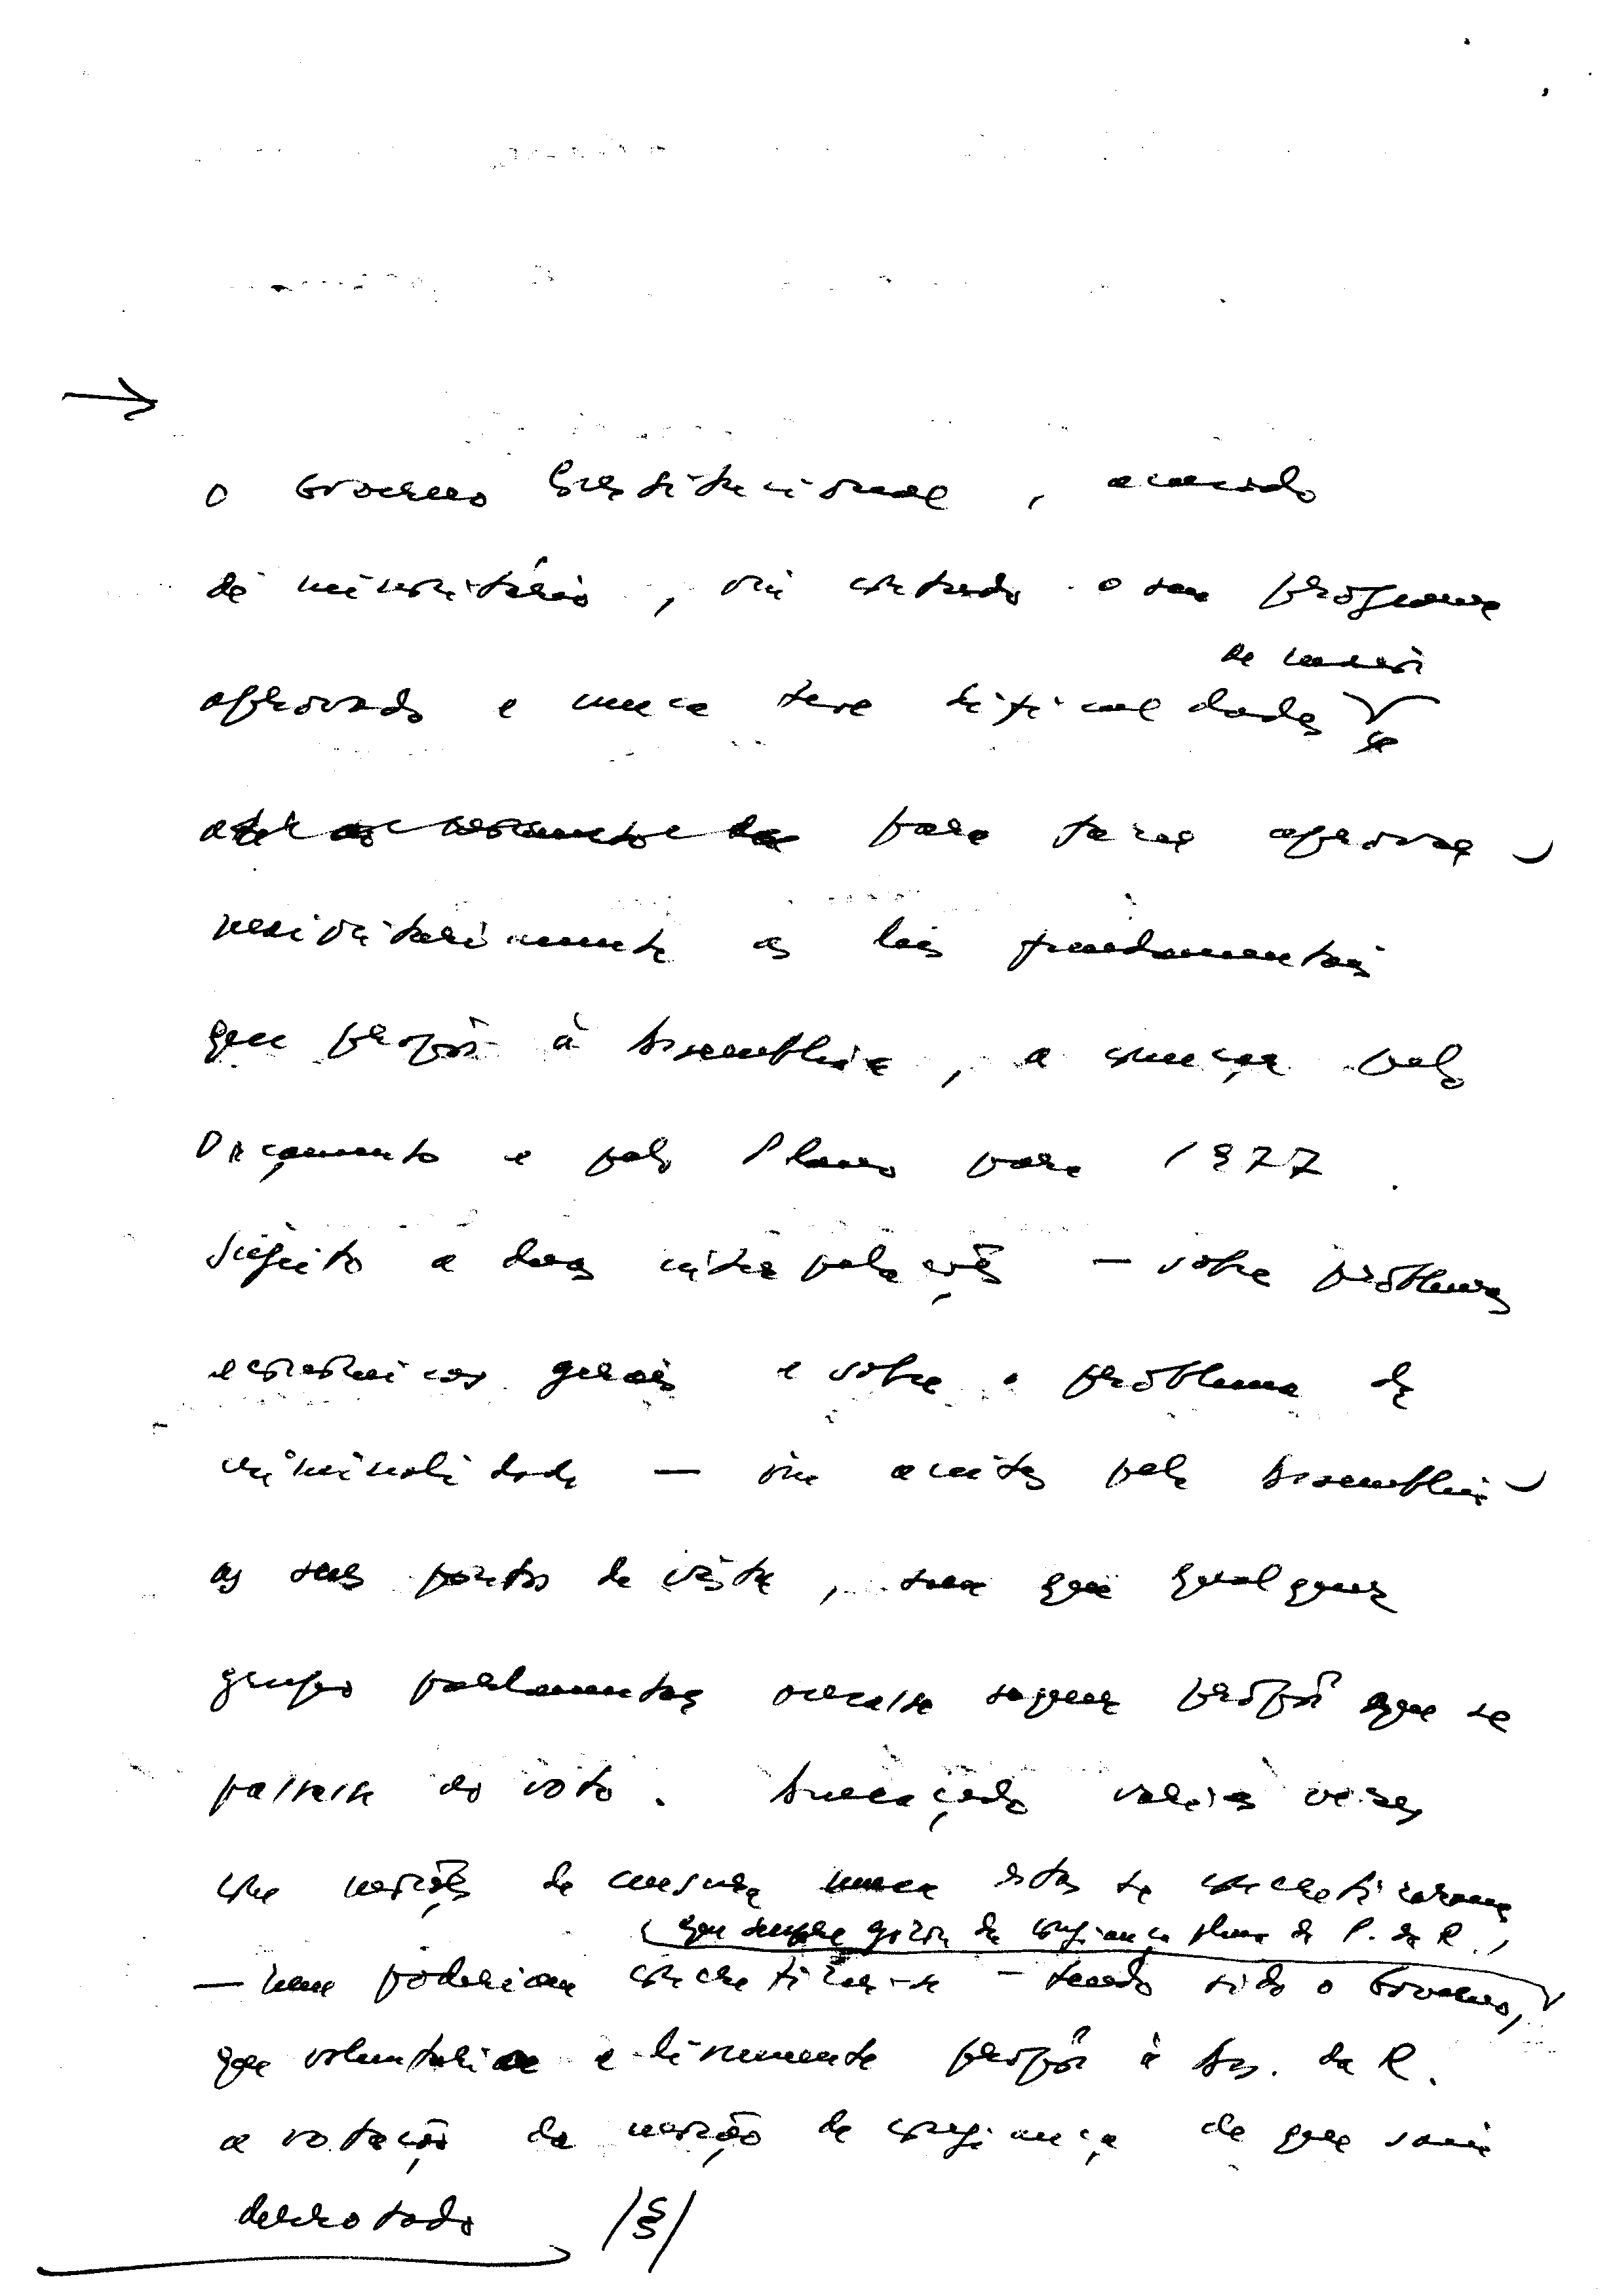 O Governo Constitucional, acusado
de minoritário, viu contudo o seu programa
aprovado e nunca teve dificuldades
de maior
para fazer aprovar
maioritariamente as leis fundamentais
que propôs à Assembleia, a começar pelo
Orçamento e pelo Plano para 1977.
Sujeito a duas interpelações — sobre problemas
económicos gerais e sobre o problema da
criminalidade — viu aceites pela Assembleia
os seus pontos de vista, sem que qualquer
grupo parlamentar ousasse sequer propôr que se
passasse ao voto. Ameaçado várias vezes
com moções de censura nunca estas se concretizaram
que sempre gozou da confiança plena do P. da R.,
— nem poderiam concretizar-se — tendo sido o Governo,
que voluntária e livremente propôs à Ass. da R.
a votação da moção de confiança de que saiu
derrotado /§/